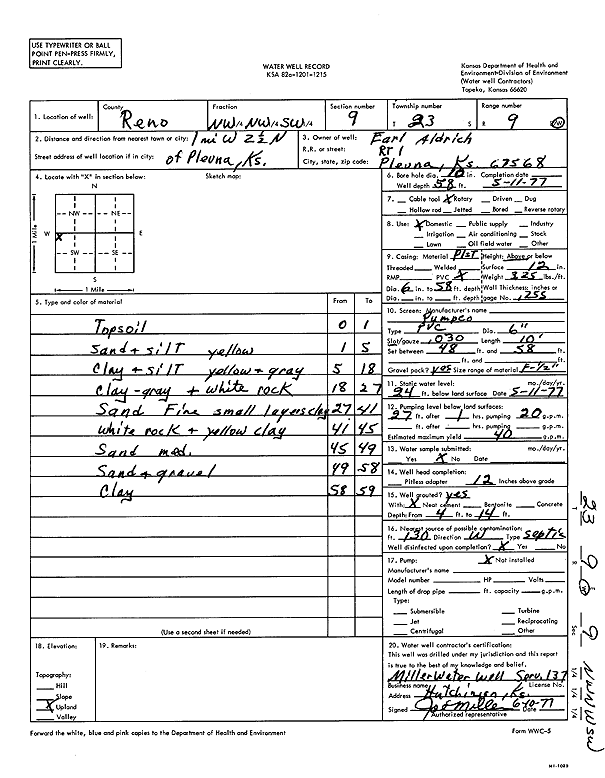 USE TYPEWRITER OR BALL
POINT PEN-PRESS FIRMLY,
PRINT CLEARLY.
WATER WELL RECORD
KSA 82a-1201-1215
Kansas Department of Health and
Environment-Division of Environment
(Water well Contractors)
Topeka, Kansas 66620
1. Location of well: County Reno Fraction NW 1/4 NW 1/4 SW 1/4 Section number 9 Township number T 23 S Range number R 9 E/W
2. Distance and direction from nearest town or city: 1 mi W 2 1/2 N
Street address of well location if in city: of Plevna, Ks.
3. Owner of well: Earl Aldrich
R.R. or street: RT 1
City, state, zip code: Plevna, Ks. 67568
4. Locate with "X" in section below: Sketch map:
N
NW NE
W X E
SW SE
S
1 Mile
1 Mile
5. Type and color of material From To
Topsoil 0 1
Sand + silt yellow 1 5
Clay + silt yellow + gray 5 18
Clay-gray + white rock 18 27
Sand Fine small layers clay 27 41
White rock + yellow clay 41 45
Sand med. 45 49
Sand + gravel 49 58
Clay 58 59
(Use a second sheet if needed)
6. Bore hole dia. 10 in. Completion date
Well depth 58 ft. 5-11-77
7. Cable tool X Rotary Driven Dug
Hollow rod Jetted Bored Reverse rotary
8. Use: X Domestic Public supply Industry
Irrigation Air conditioning Stock
Lawn Oil field water Other
9. Casing: Material PlST Height: Above or below
Threaded Welded Surface 12 in.
RMP PVC X Weight 325 lbs./ft.
Dia. 6 in. to 58 ft. depth Wall Thickness: inches or
Dia. in. to ft. depth gage No. .255
10. Screen: Manufacturer's name
Pumpco
Type PVC Dia. 6"
Slot/gauze .030 Length 10'
Set between 48 ft. and 58 ft.
ft. and ft.
Gravel pack? yes Size range of material F-1/2"
11. Static water level: mo./day/yr.
24 ft. below land surface Date 5-11-77
12. Pumping level below land surfaces:
27 ft. after 1 hrs. pumping 20 g.p.m.
ft. after hrs. pumping g.p.m.
Estimated maximum yield 40 g.p.m.
13. Water sample submitted: mo./day/yr.
Yes X No Date
14. Well head completion:
Pitless adapter 12 Inches above grade
15. Well grouted? yes
With: X Neat cement Bentonite Concrete
Depth: From 4 ft. to 14 ft.
16. Nearest source of possible contamination:
ft. 130 Direction W Type Septic
Well disinfected upon completion? X Yes No
17. Pump: X Not installed
Manufacturer's name
Model number HP Volts
Length of drop pipe ft. capacity g.p.m.
Type:
Submersible Turbine
Jet Reciprocating
Centrifugal Other
18. Elevation:
Topography:
Hill
Slope
X Upland
Valley
19. Remarks:
20. Water well contractor's certification:
This well was drilled under my jurisdiction and this report
is true to the best of my knowledge and belief.
Miller Water Well Serv. 137
Business name License No.
Address Hutchinson, Ks.
Signed Date 6-10-77
Authorized representative
Forward the white, blue and pink copies to the Department of Health and Environment
Form WWC-5
T 23 R 9 W Sec 9 1/4 1/4 1/4 NW NW SW